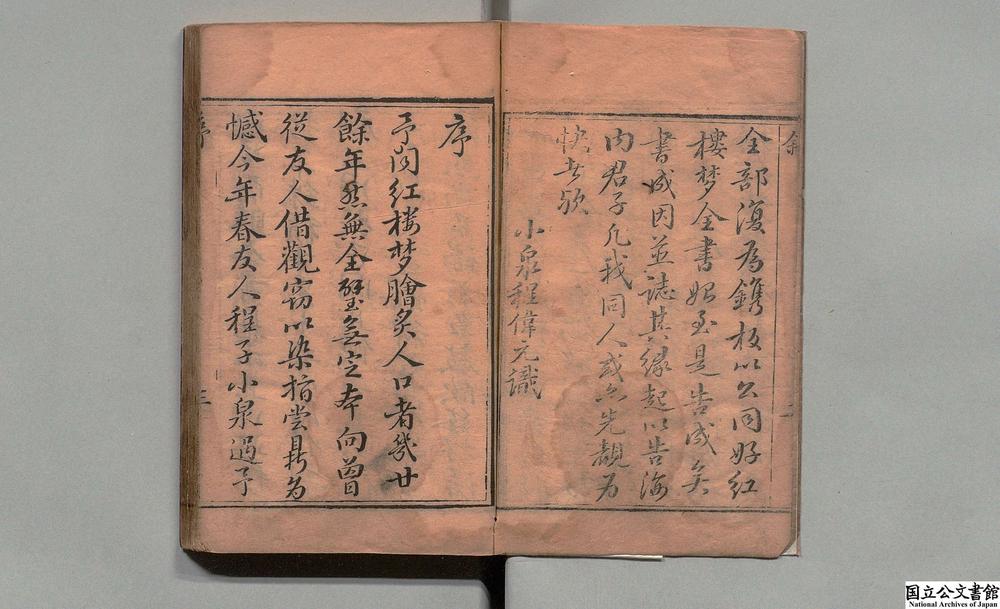 全部復為鐫板以公同好紅
樓梦全書始至是告成矣
書成因並誌其緣起以告海
內君子凡我同人或亦先覩為
快者欤
小泉程偉元識
序
予闻红楼梦膾炙人口者幾廿
餘年然無全璧無定本向曾
從友人借觀窃以染指尝鼎为
憾今年春友人程子小泉過予
序
三
国立公文書館
National Archives of Japan